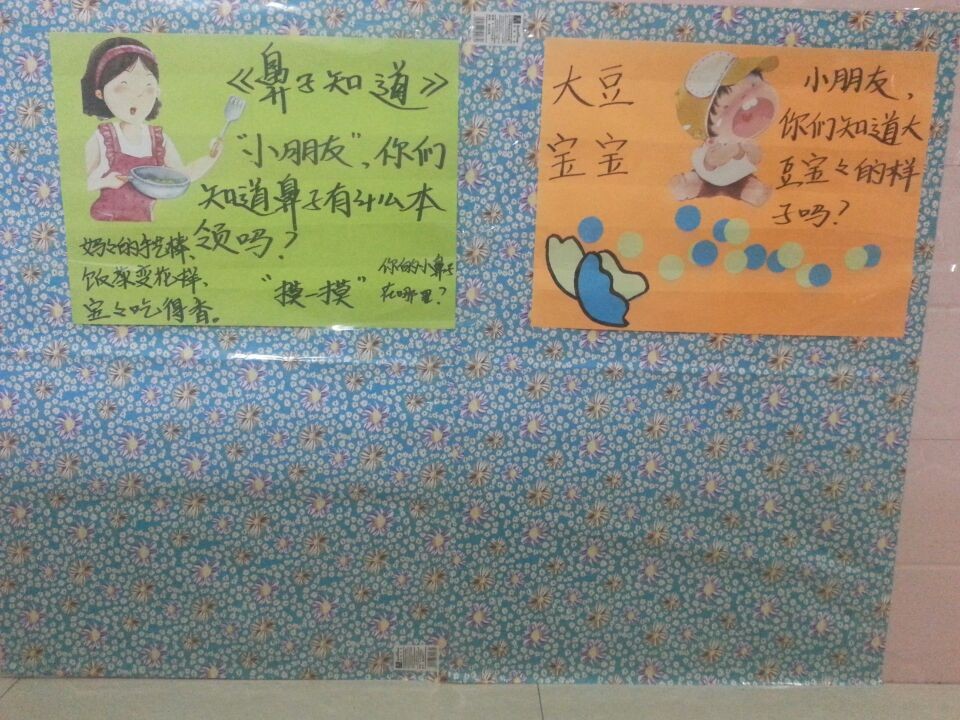 《鼻子知道》
"小朋友",你们
知道鼻子有什么本
领吗?
妈々的手艺棒、
饭菜变花样、
宝々吃得香。
"摸一摸"
你的小鼻子
在哪里?
大豆
宝宝
小朋友,
你们知道大
豆宝々的样
子吗?